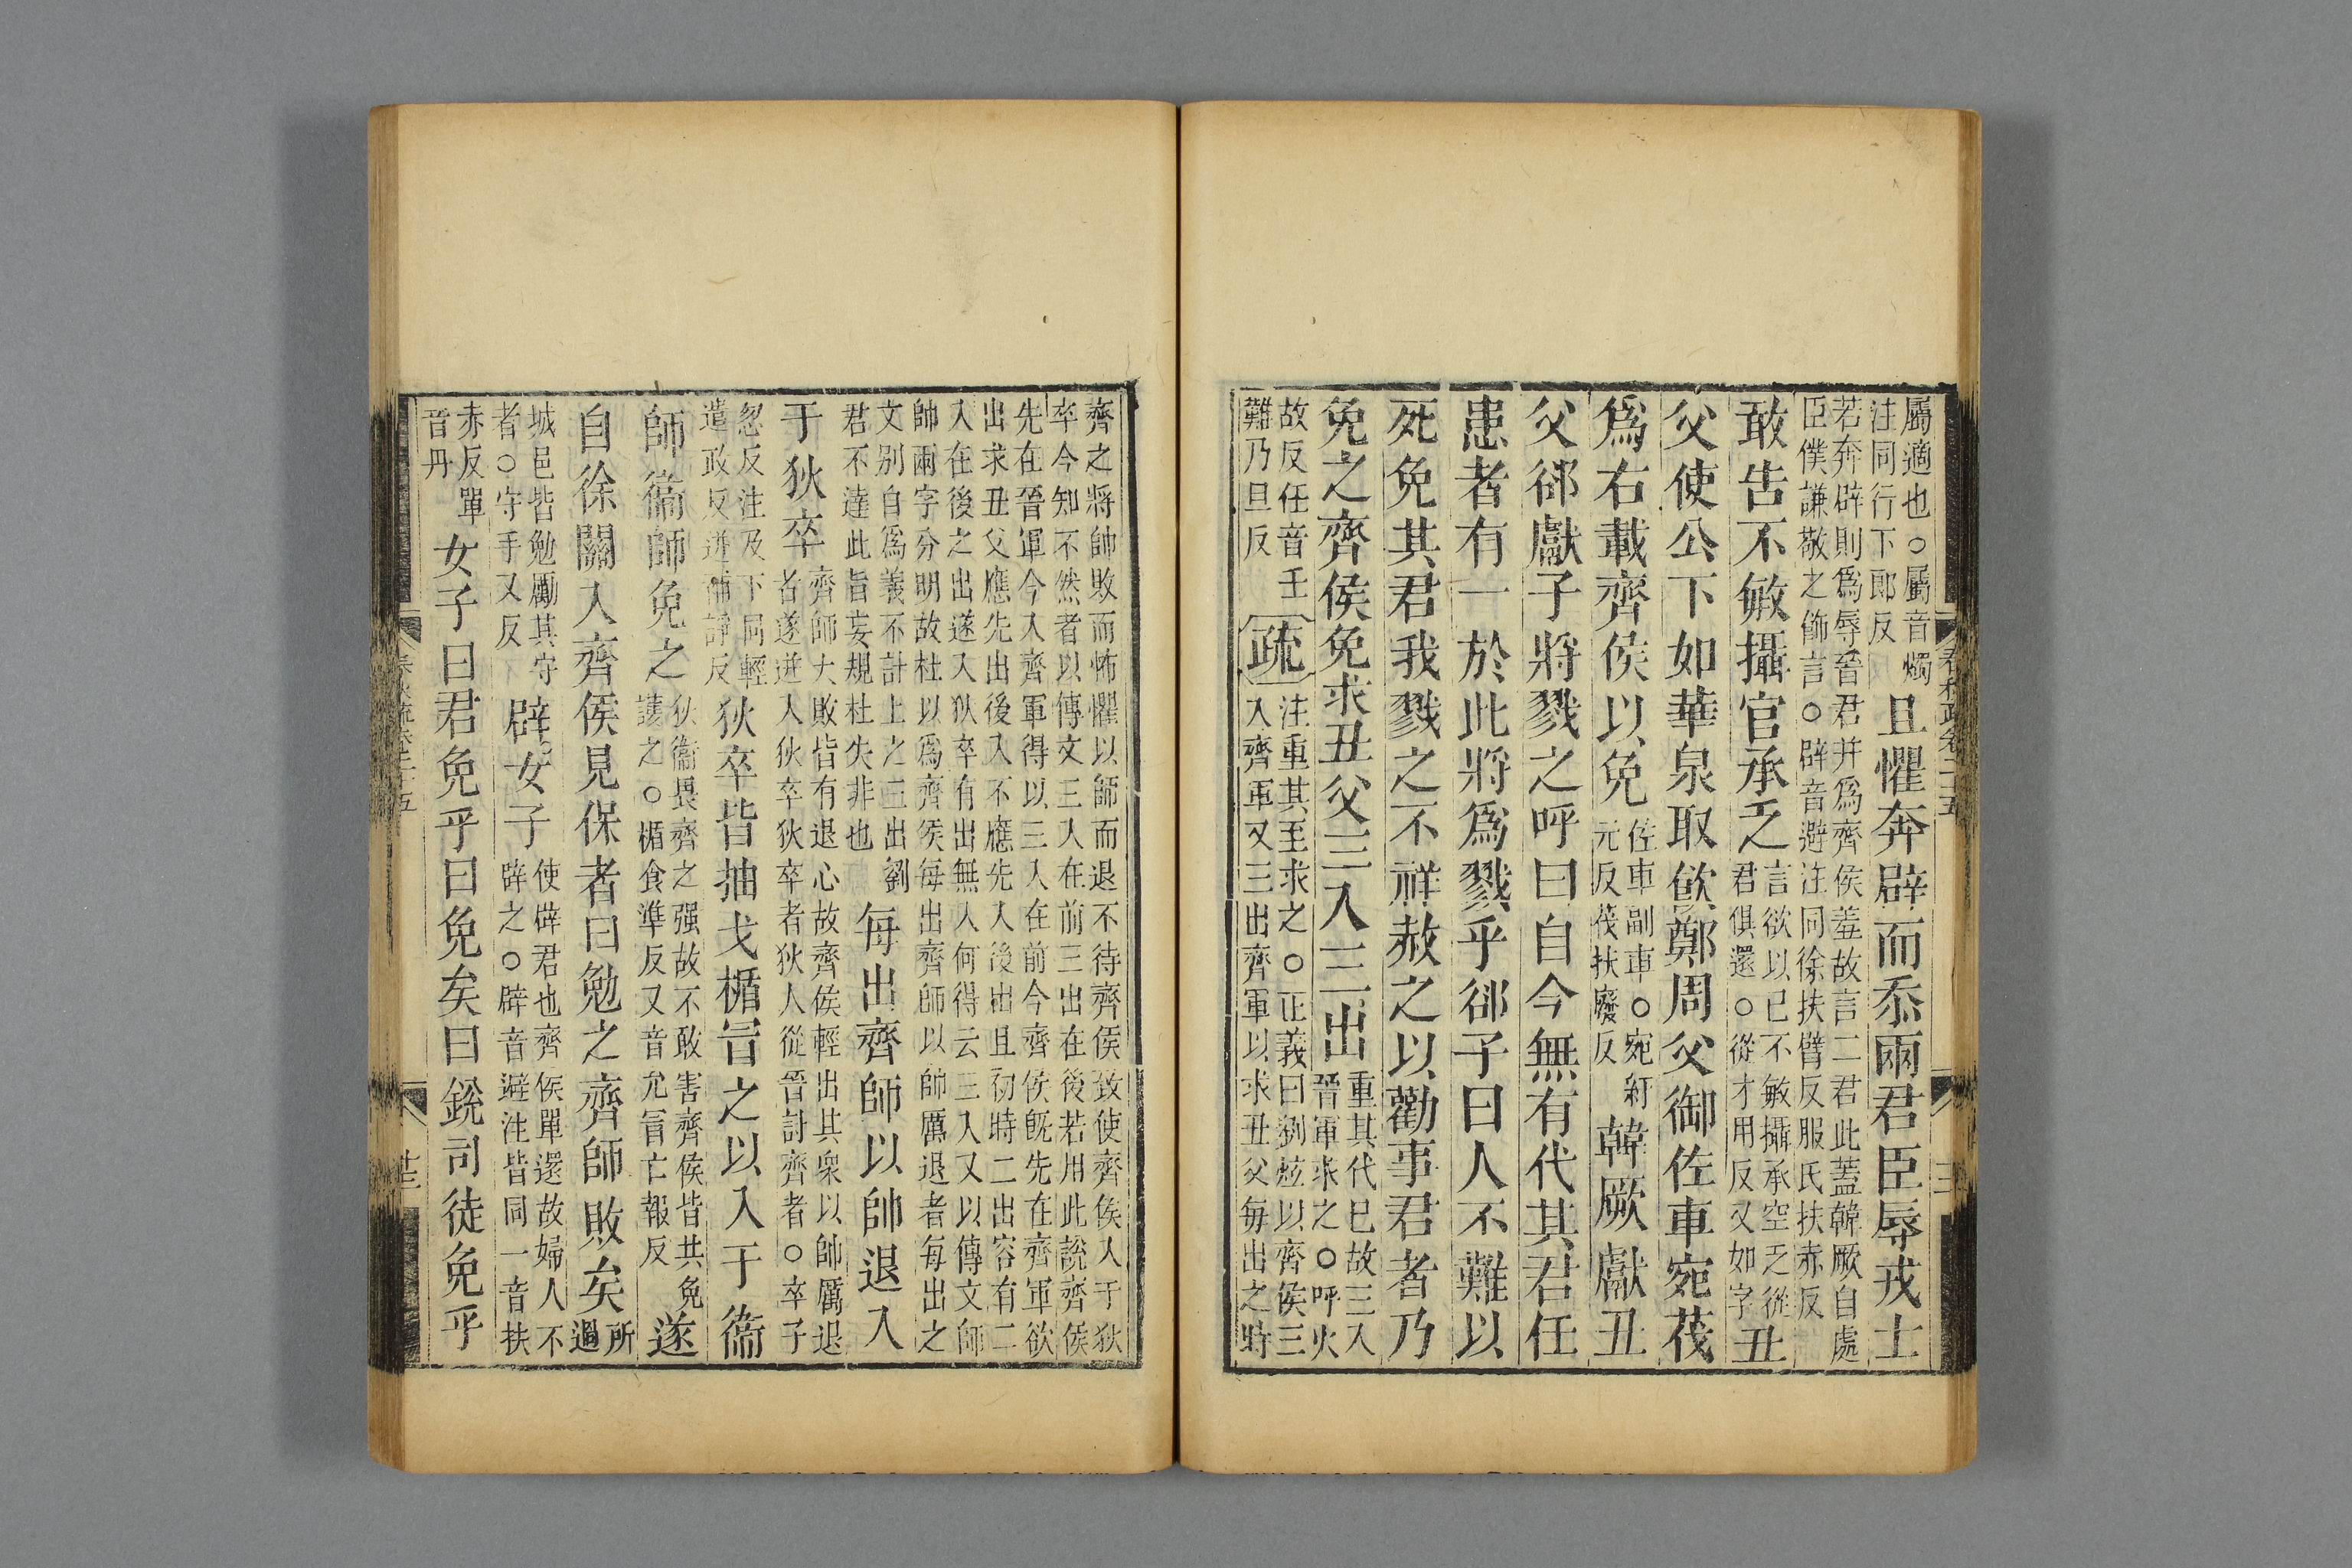 屬適也○屬音燭
注同行下郎反
且懼奔辟而忝兩君臣辱戎士
若奔辟則爲辱晉君并爲齊侯羞故言二君此蓋韓厥自處
臣僕謙敬之飾言○辟音避注同徐扶臂反服氏扶赤反
敢告不敏攝官承乏
言欲以已不敏攝承空乏從
君俱還○從才用反又如字
丑
父使公下如華泉取飮鄭周父御佐車宛茷
爲右載齊侯以免
佐車副車○宛紆
元反茷扶廢反
韓厥獻丑
父郤獻子將戮之呼曰自今無有代其君任
患者有一於此將爲戮乎郤子曰人不難以
死免其君我戮之不祥赦之以勸事君者乃
免之齊侯免求丑父三入三出
重其代已故三入
晉軍求之○呼火
故反任音壬
難乃旦反
疏
注重其至求之○正義曰劉炫以齊侯三
入齊軍又三出齊軍以求丑父每出之時
齊之將帥敗而怖懼以師而退不待齊侯致使齊侯入于狄
卒今知不然者以傳文三入在前三出在後若用此說齊侯
先在晉軍今入齊軍得以三入在前今齊侯旣先在齊軍欲
出求丑父應先出後入不應先入後出且初時二出容有二
入在後之出遂入狄卒有出無入何得云三入又以傳文師
帥兩字分明故杜以爲齊侯每出齊師以帥厲退者每出之
文別自爲義不計上之三出劉
君不達此旨妄規杜失非也
每出齊師以帥退入
于狄卒
齊師大敗皆有退心故齊侯輕出其衆以帥厲退
者遂迸入狄卒狄卒者狄人從晉討齊者○卒子
忽反注及下同輕
遣政反迸補諍反
狄卒皆抽戈楯冒之以入于衞
師衞師免之
狄衞畏齊之强故不敢害齊侯皆共免
護之○楯食準反又音允冒亡報反
遂
自徐關入齊侯見保者曰勉之齊師敗矣
所
過
城邑皆勉勵其守
者○守手又反
辟女子
使辟君也齊侯單還故婦人不
辟之○辟音避注皆同一音扶
赤反單
音丹
女子曰君免乎曰免矣曰銳司徒免乎